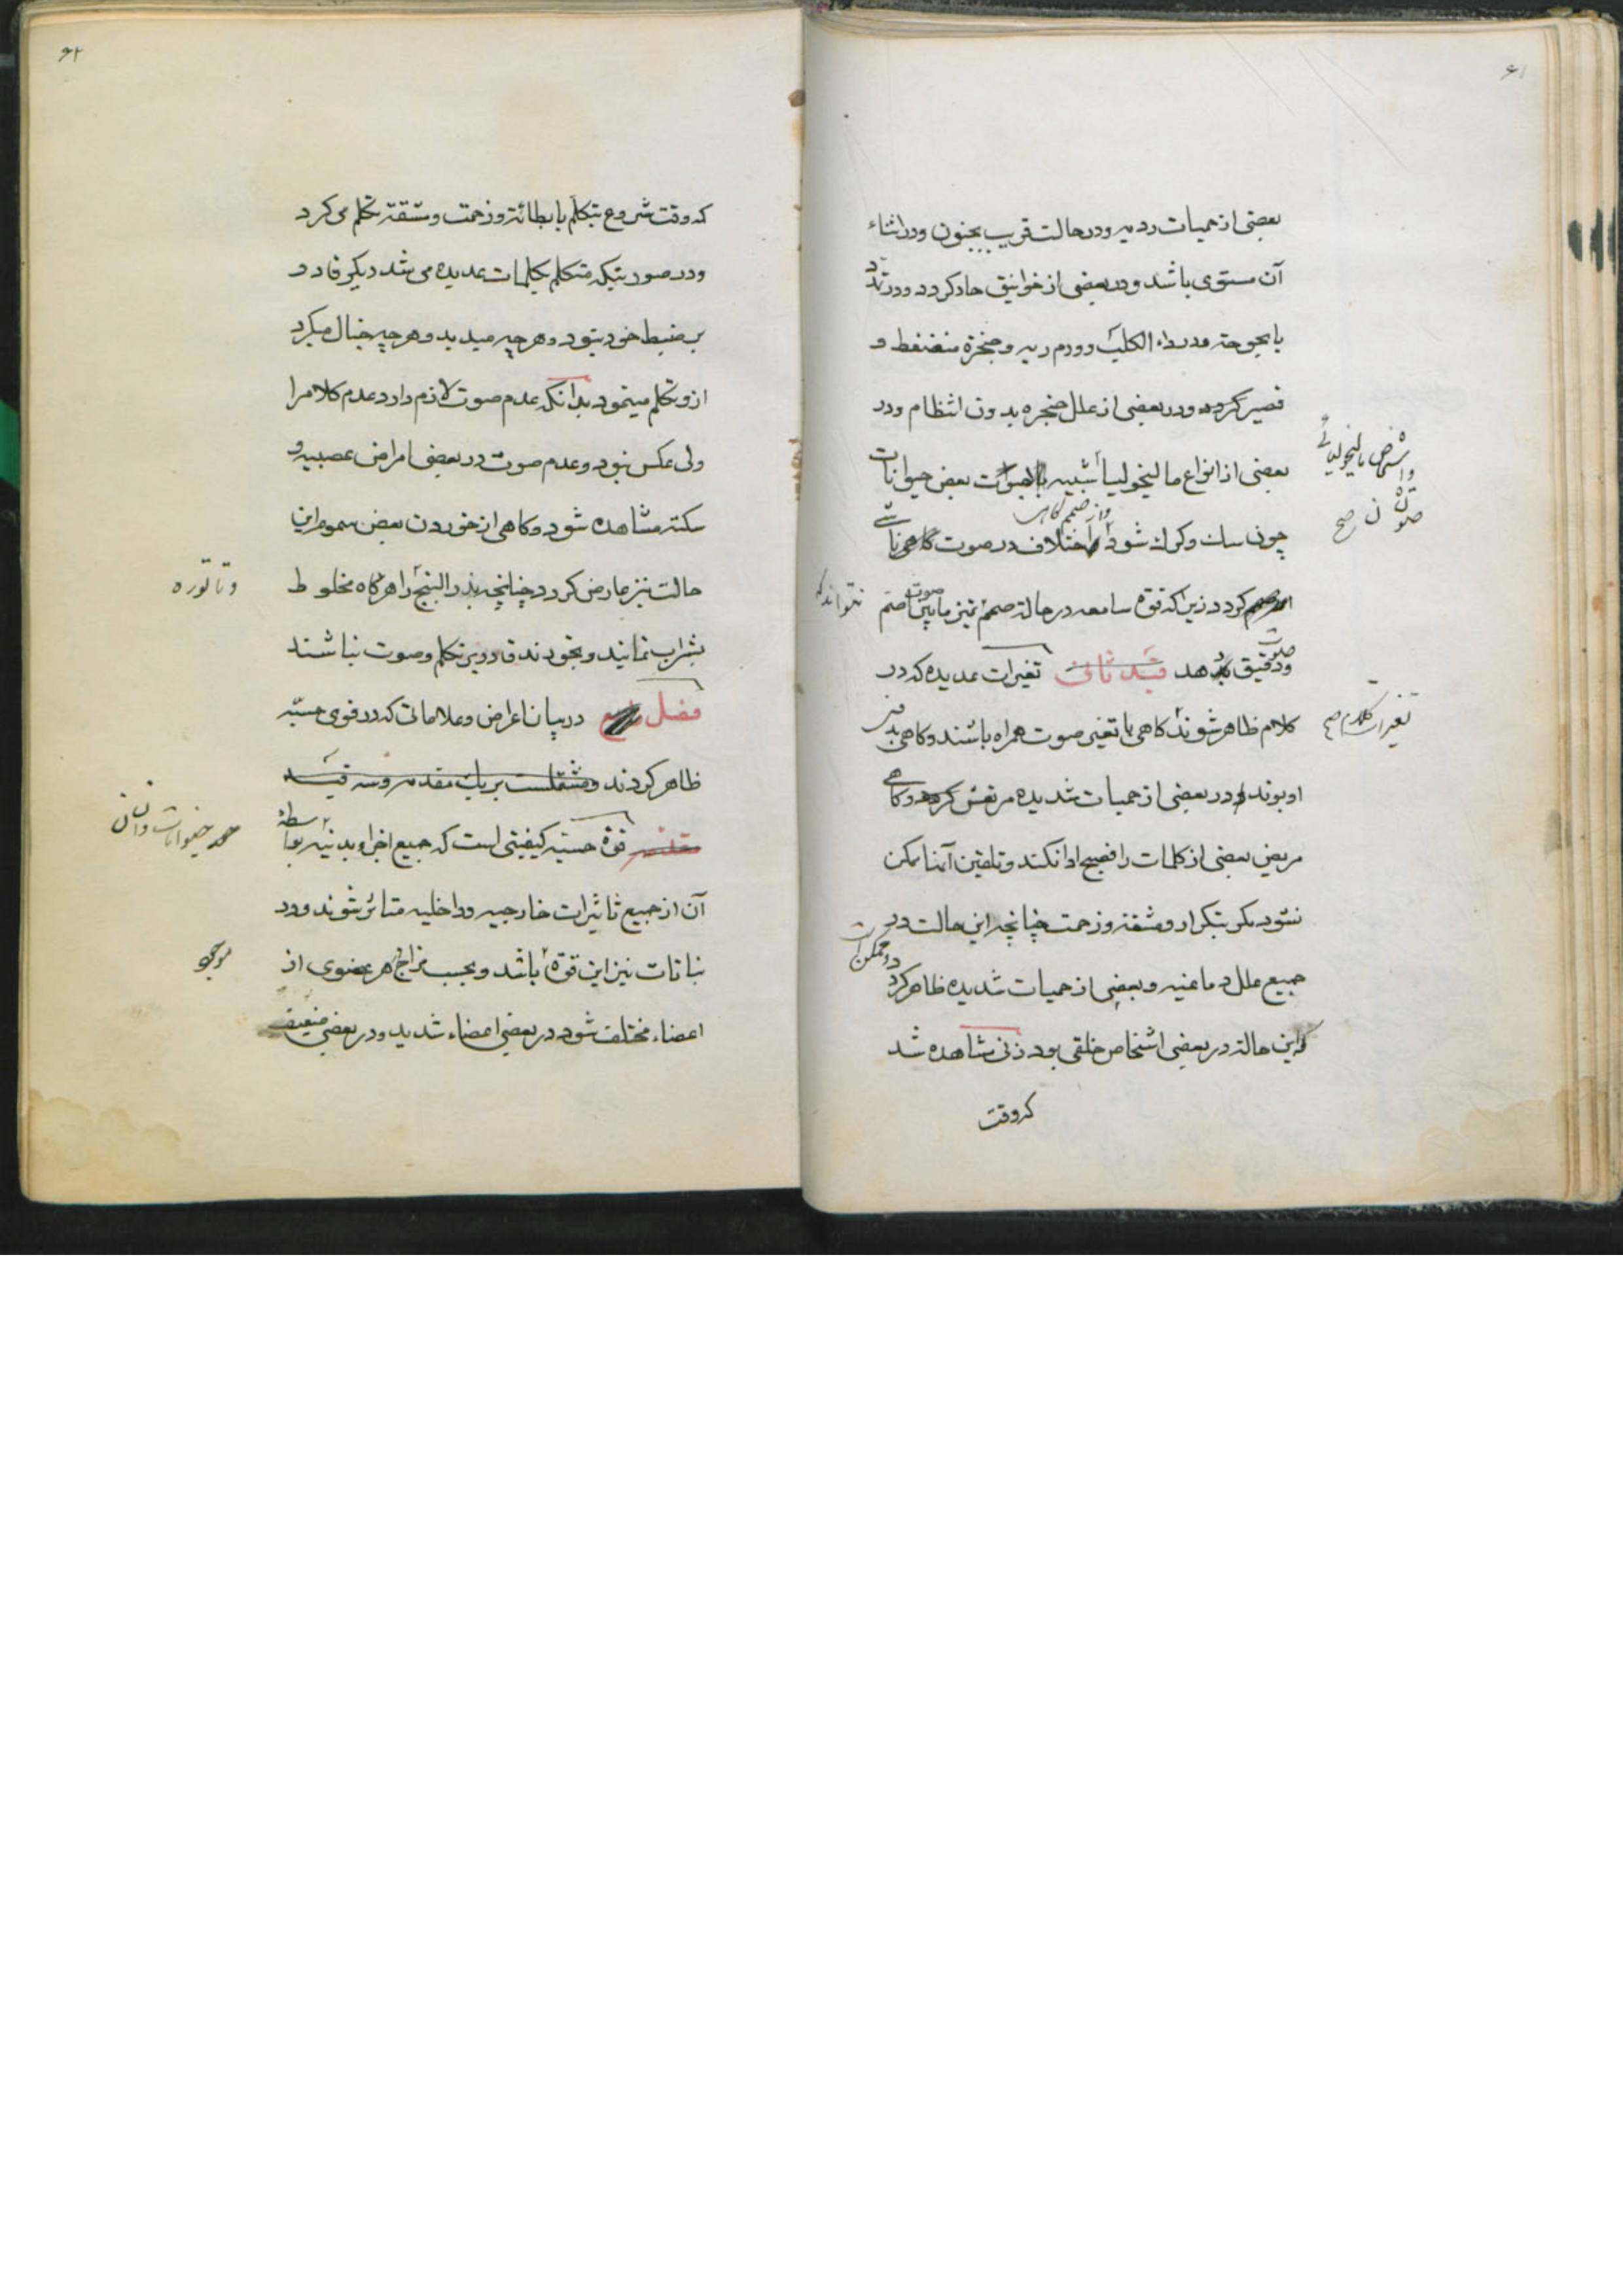 ۶۱
بعضی از حمیات ردیه و در حالت قریب بجنون و در اثناء
آن مستوی باشد و در بعضی از خوانیق حاد کردد و در تزد
با بحوحة در داء الکلب و ورم ریه و حنجره منضغط و
قصیر کردد و در بعضی از علل حنجره بدون انتظام و در
بعضی از انواع مالیخولیا شبیه باصوات بعض حیوانات
چون سک و کرک شود اختلاف در صوت کاهی ناشی
از صمم کردد زیرا که قوه سامعه در حالة صمم تمیز مابین صوت اصم
و دقیق ندهد قید ثانی تغیرات عدیده که در
کلام ظاهر شوند کاهی با تغیر صوت همراه باشند و کاهی بدون
او بوند و در بعضی از حمیات شدیده مرتعش کردد و کاهی
مریض بعضی از کلمات را فصیح ادا نکند و تلفین آنها ممکن
نشود مکر بتکرار و مشقة و زحمت چنانچه این حالت در
جمیع علل دماغیه و بعضی از حمیات شدیده ظاهر کردد
که این حالة در بعضی اشخاص خلقی بود زنی مشاهده شد
که وقت
تغیرات کلام صح
نتواند که
۶۲
که وقت شروع بتکلم با بطائة و زحمت و مشقة تکلم می کرد
و در صورتیکه متکلم بکلمات عدیده می شد دیکر قادر
بر ضبط خود نبود و هر چه میدید و هر چه خیال میکرد
از و تکلم مینمود بدانکه عدم صوت لازم دارد عدم کلام را
ولی عکس نبود و عدم صوت در بعضی امراض عصبیه و
سکته مشاهده شود و کاهی از خوردن بعض سموم این
حالت نیز عارض کردد چنانچه بذر البنج را هر کاه مخلوط
بشراب نمایند و بخورند قادر بر تکلم و صوت نباشند
فصل در بیان اعراض و علاماتی که در قوی حسیّه
ظاهر کردند و مشتملست بر یک مقدمه و سه قید
مقدمه قوة حسیّه کیفیتی است که جمیع اجزاء بدنیه بواسطهٔ
آن از جمیع تاثیرات خارجیه و داخلیه متاثر شوند و در
نباتات نیز این قوه باشد و بحسب مزاج هر عضوی از
اعضاء مختلف شود در بعضی اعضاء شدید و در بعضی ضعیف
و تاتوره